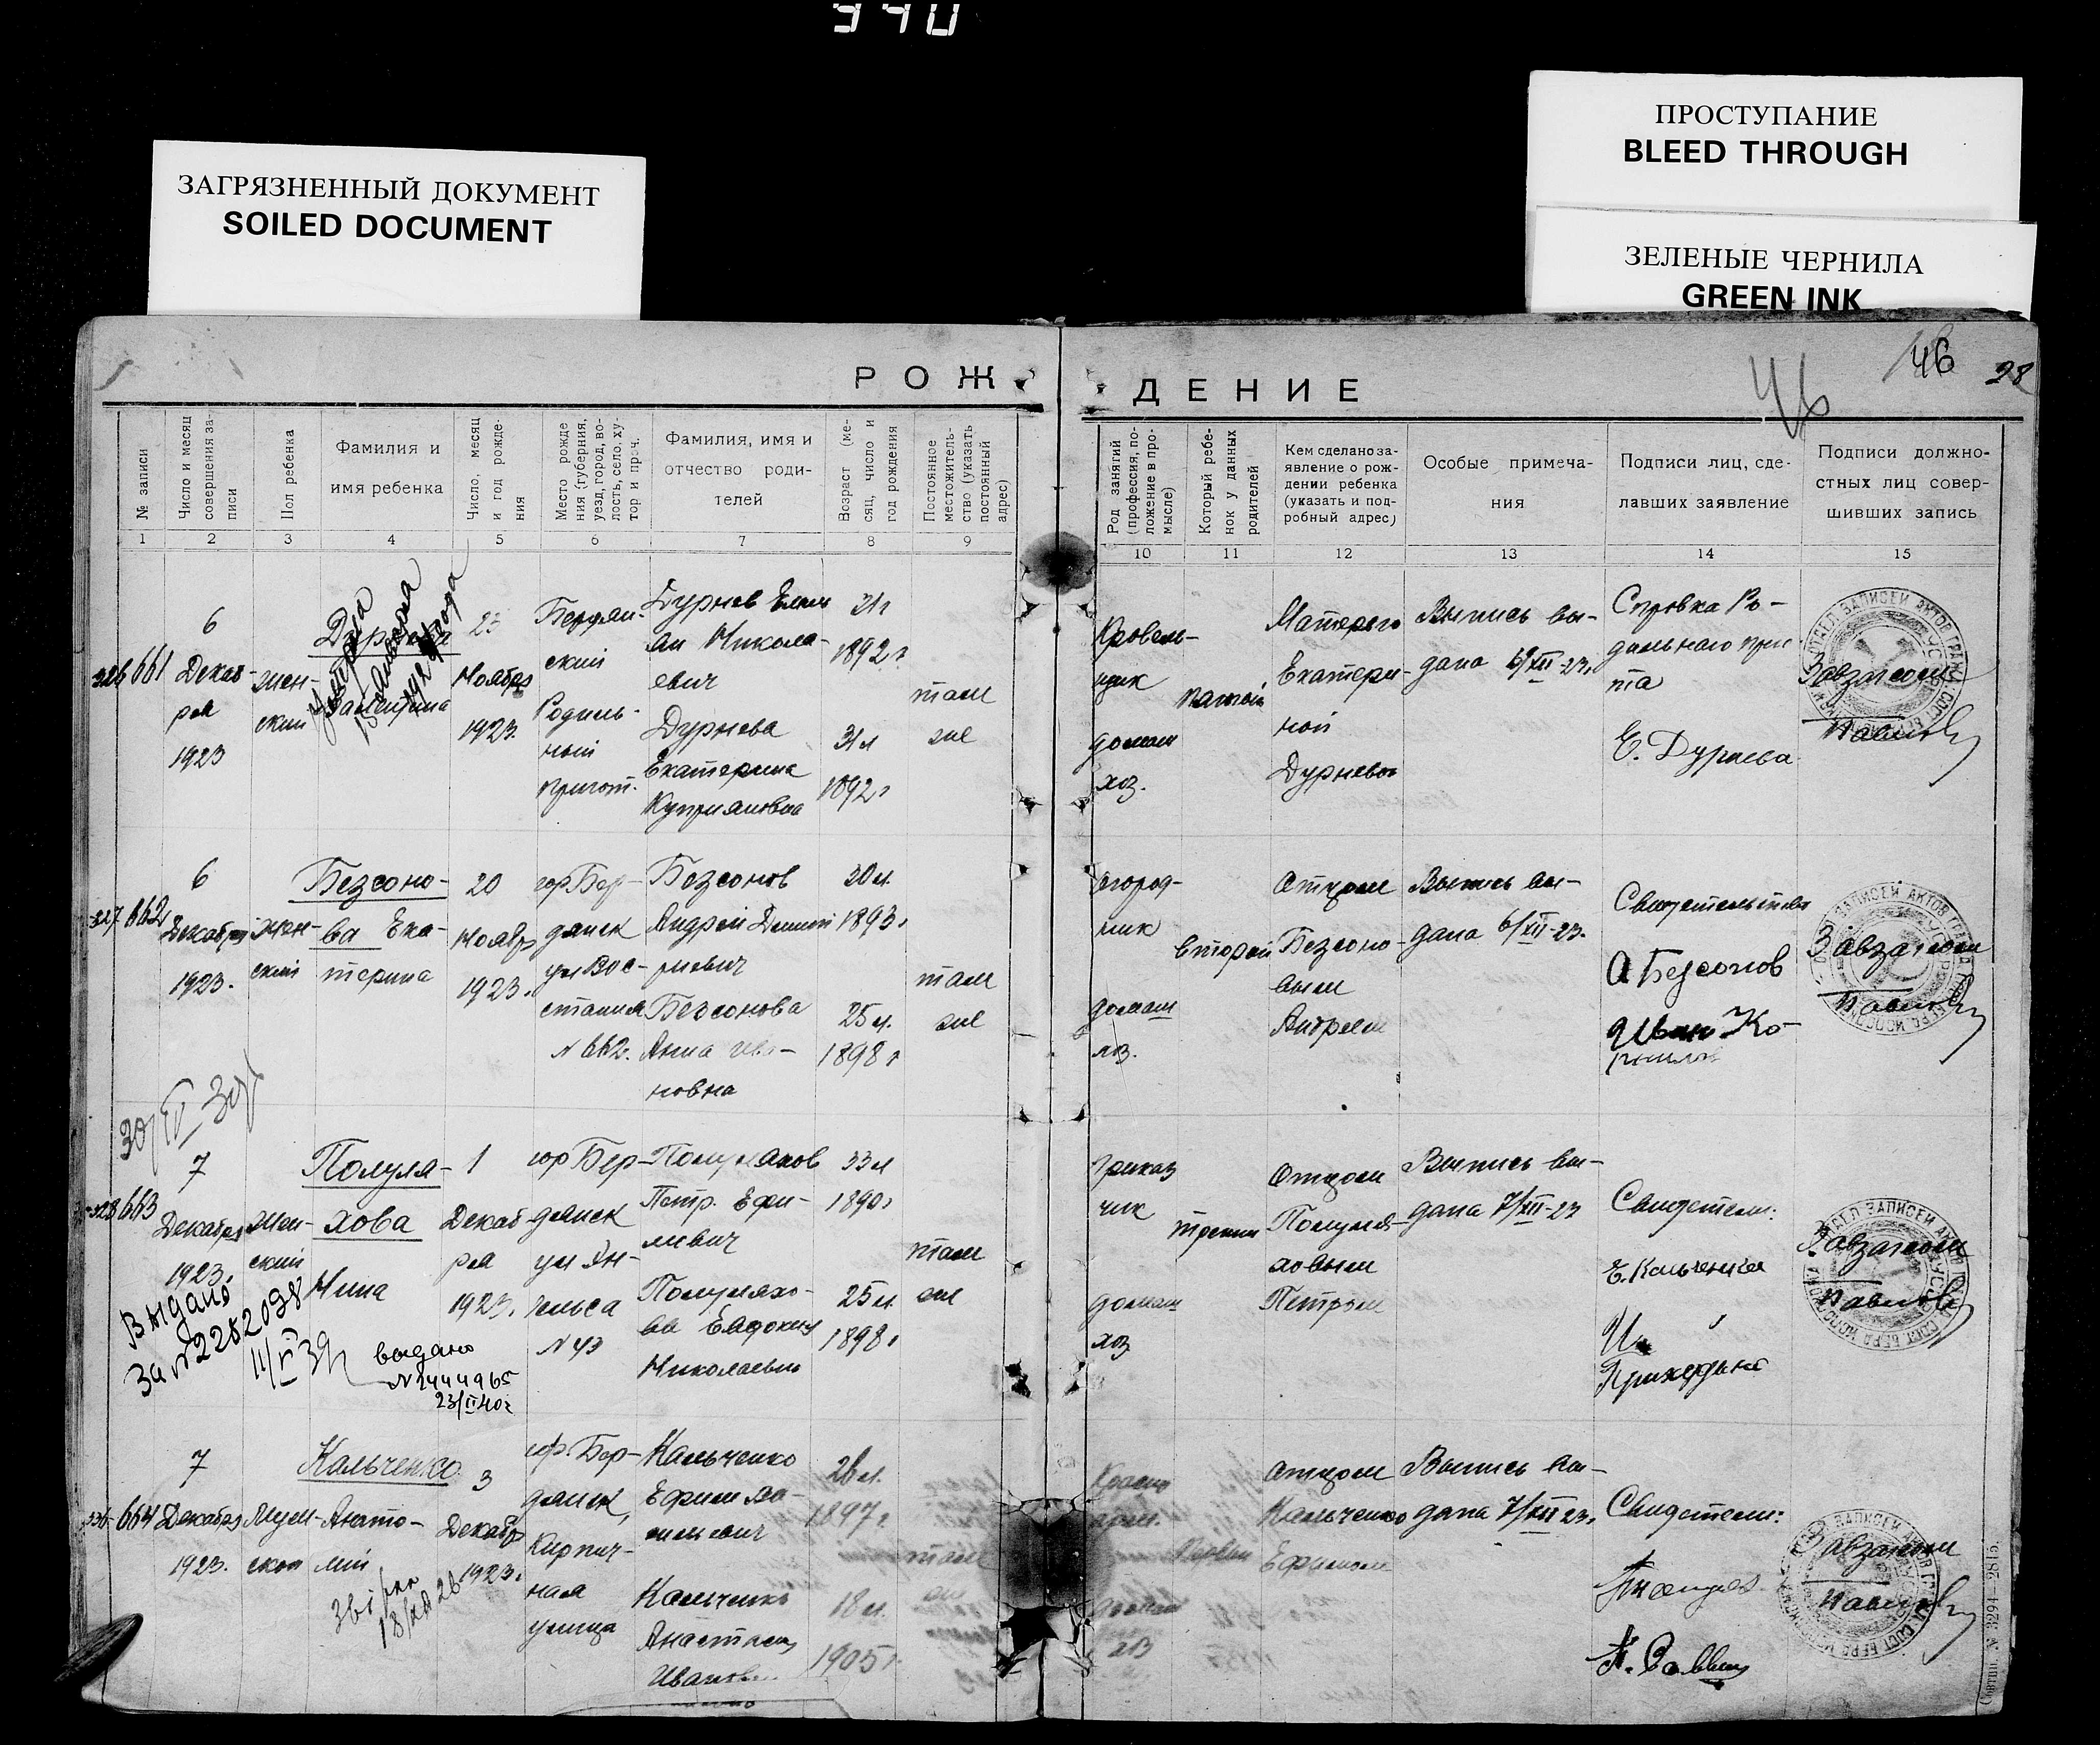 390
ЗАГРЯЗНЕННЫЙ ДОКУМЕНТ
SOILED DOCUMENT
ПРОСТУПАНИЕ
BLEED THROUGH
ЗЕЛЕНЫЕ ЧЕРНИЛА
GREEN INK
46
46
28
РОЖ
ДЕНИЕ
№ записи
Число и месяц
совершения за-
писи
Пол ребенка
Фамилия и
имя ребенка
Число, месяц
и год рожде-
ния
Место рожде
ния (губерния,
уезд, город, во-
лость, село, ху-
тор и проч.
Фамилия, имя и
отчество роди-
телей
Возраст (ме-
сяц, число и
год рождения
Постоянное
местожитель-
ство (указать
постоянный
адрес)
Род занятий
(профессия, по-
ложение в про-
мысле)
Который ребе-
нок у данных
родителей
Кем сделано за-
явление о рож-
дении ребенка
(указать и под-
робный адрес)
Особые примеча-
ния
Подписи лиц, сде-
лавших заявление
Подписи должно-
стных лиц совер-
шивших запись
1 2 3 4 5 6 7 8 9 10 11 12 13 14 15
326 661
6
Декаб-
ря
1923
жен-
ский
23
Ноября
1923.
Бердян-
ский
Родиль-
ный
приют.
Дурнев
Никола-
евич
Дурнева
Екатерина
Куприяновна
31 г
1892 г.
31 л
1892 г
там
же
Кровель-
щик
домаш
хоз.
пятый
Матерью
Екатери-
ной
Дурневой
Выпись вы-
дана 6/XII-23.
Справка Ро-
дильного прию
та
Е. Дурнева
Завзагсом
327 662
6
Декабря
1923.
жен-
ский
Безсоно-
ва Ека-
терина
20
Ноября
1923.
гор Бер-
дянск
ул Вос-
стания
N 662.
Безсонов
Андрей Дмит
риевич
Безсонова
Анна Ива-
новна
30 л.
1893 г
25 л.
1898 г
там
же
огород-
ник
домаш
хоз.
второй
Отцом
Безсоно-
вым
Андреем
Выпись вы-
дана 6/XII-23.
А Безсонов
Иван Ко-
Завзагсом
30/IV 39г
328 663
7
Декабря
1923.
жен-
ский
Полуля-
хова
Нина
1
Декаб
ря
1923.
гор Бер-
дянск
ул Эн-
гельса
N 43
Полуляхов
Петр. Ефи-
мович
Полуляхо-
ва Евдокия
Николаевн
33 л
1890 г
25 л.
1898 г
там
же
приказ
чик
домаш
хоз
третий
Отцом
Полуля-
ховым
Петром
Выпись вы-
дана 7/XII-23
Свидетели:
Е. Кальченко
Завзагсом
Выдано
за N 2282098
11/VI 39
выдано
N 2444965
23/II 40 г
664
7
Декабря
1923.
Муж-
ской
Кальченко
Анато-
лий
3
Декабря
1923.
гор. Бер-
дянск,
Кирпич-
ная
улица
Кальченко
Ефим Ва-
сильевич
Кальченко
Анастасия
Ивановна
26 л.
1897 г.
18 л.
1905 г.
там
же
Красно
арм.
домаш
хоз
первый
Отцом
Кальченко
Ефимом
Выпись вы-
дана 7/XII 23.
Свидетели:
Завзагсом